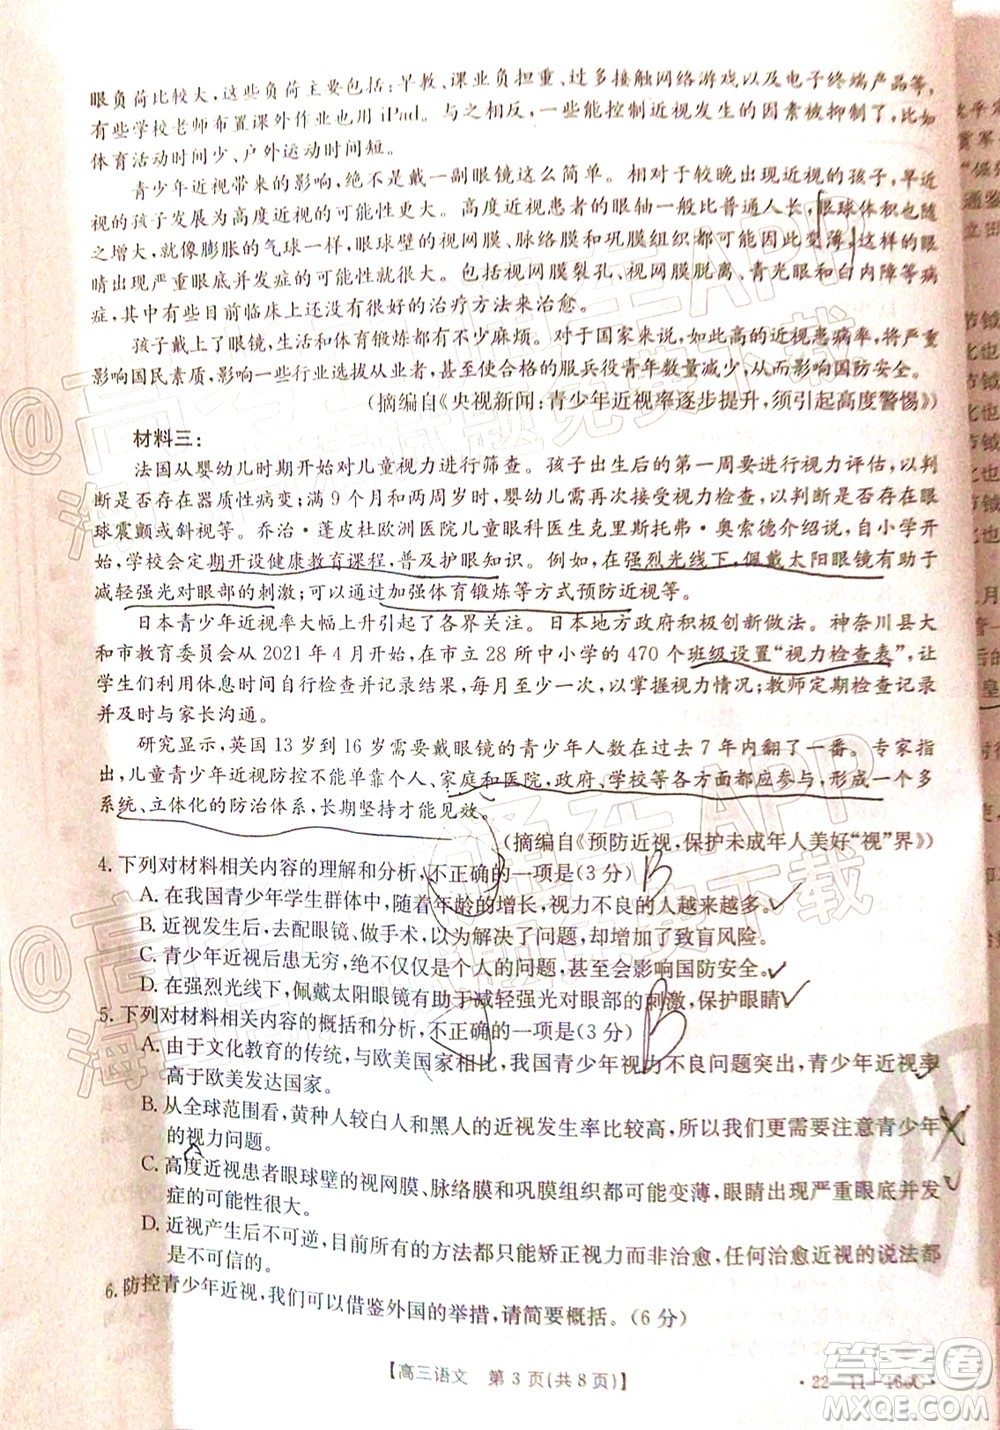 眼负荷比较大,这些负荷主要包括:早教、课业负担重、过多接触网络游戏以及电子终端产品等,
有些学校老师布置课外作业也用 iPad。与之相反,一些能控制近视发生的因素被抑制了,如
体育活动时间少、户外运动时间短。
青少年近视带来的影响,不只是戴一副眼镜这么简单。相对于较晚出现近视的孩子,早近
视的孩子发展为高度近视的可能性更大。高度近视患者的眼轴一般比普通人长,眼球体积也随
之增大,就像膨胀的气球一样,眼球壁的视网膜、脉络膜和巩膜组织都可能因此变薄,这样的眼
睛出现严重眼底病并发症的可能性很大,包括视网膜裂孔、视网膜脱离、青光眼和白内障等病
症,有些目前临床上还没有很好的治疗方法来治愈。
孩子戴上了眼镜,生活和体育锻炼都有不少麻烦。对于国家来说,如此高的近视患病率,将严重
影响国民素质,影响一些行业挑选从业者,甚至使合格的服兵役青年数量减少,影响国防安全。
(摘编自《央视新闻:青少年近视率逐步提升,须引起高度警惕》)
材料三:
法国从婴幼儿时期开始对儿童视力进行筛查。孩子出生后的第一周要进行视力评估,以判
断是否存在器质性病变;满 9 个月和两周岁时,婴幼儿需两次接受视力检查,检查是否存在眼
球震颤或斜视等。乔治·蓬皮杜欧洲医院儿童眼科医生克里斯托弗·奥索德介绍说,自小学开
始,学校会定期开设健康教育课程,普及护眼知识。例如,在强烈光线下,佩戴太阳眼镜有助于
减轻强光对眼部的刺激;可以通过加强体育锻炼等方式预防近视等。
日本青少年近视率大幅上升引起了各界关注。日本地方政府积极创新做法。神奈川县大
和市教育委员会从 2021 年 4 月开始,在市立 28 所中小学的 470 个班级设置“视力检查表”,让
学生们利用休息时间自行检查并记录结果,每月至少一次,掌握视力情况;教师定期检查记录
并及时与家长沟通。
研究显示,英国 13 岁到 16 岁需要戴眼镜的青少年人数在过去 7 年内翻了一番。专家指
出,儿童青少年近视防控不能单靠个人,家庭和医院,政府、学校等各方面都应参与,形成一个多
系统、立体化的防治体系,长期坚持才能见效。
(摘编自《预防近视,保护未成年人美好“视”界》)
4. 下列对材料相关内容的理解和分析,不正确的一项是(3 分) B
A. 在我国青少年学生群体中,随着年龄的增长,视力不良的人越来越多。
B. 近视发生后,去配眼镜、做手术,可以解决屈光不正问题,却增加了致盲风险。
C. 青少年近视后患无穷,绝不仅仅是个人的问题,甚至会影响国防安全。
D. 在强烈光线下,佩戴太阳眼镜有助于减轻强光对眼部的刺激,保护眼睛
5. 下列对材料相关内容的概括和分析,不正确的一项是(3 分) B
A. 由于文化教育的传统,与欧美国家相比,我国青少年视力不良问题突出,青少年近视率
高于欧美发达国家。
B. 从全球范围看,黄种人较白人和黑人的近视发生率比较高,所以我们更要注意青少年
的视力问题。
C. 高度近视患者眼球壁的视网膜、脉络膜和巩膜组织都可能变薄,眼睛出现严重眼底并发
症的可能性很大。
D. 近视产生后不可逆,目前所有的方法都只能矫正视力而非治愈,任何治愈近视的说法都
是不可信的。
6. 防控青少年近视,我们可以借鉴外国的举措,请简要概括。(6 分)
【高三语文 第 3 页(共 8 页)】